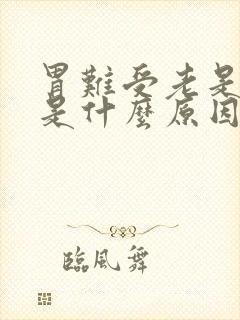 胃難受老是
是什麼原因
臨風舞